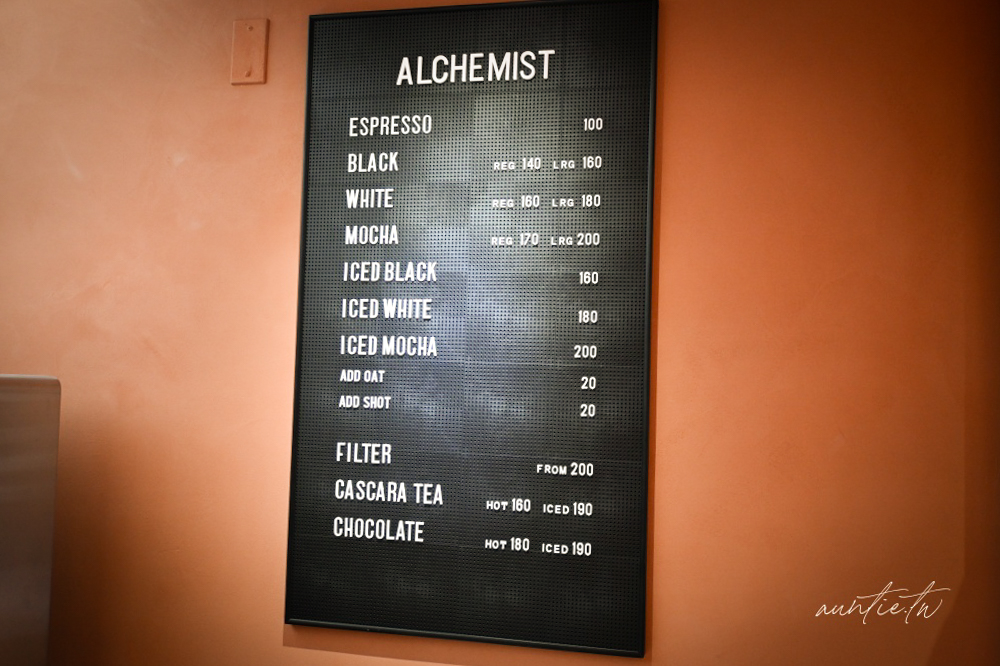 ALCHEMIST
ESPRESSO 100
BLACK REG 140 LRG 160
WHITE REG 160 LRG 180
MOCHA REG 170 LRG 200
ICED BLACK 160
ICED WHITE 180
ICED MOCHA 200
ADD OAT 20
ADD SHOT 20
FILTER FROM 200
CASCARA TEA HOT 160 ICED 190
CHOCOLATE HOT 180 ICED 190
auntie.tw